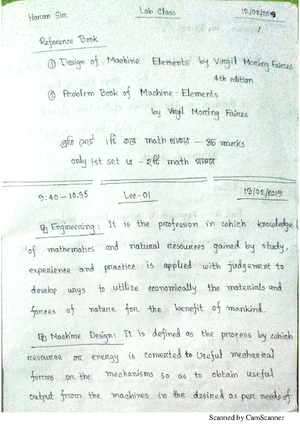 Harun Sir
Lab Class
12/02/2019
Reference Book
① Design of Machine Elements by Virgil Moring Faires
4th edition
② Problem Book of Machine Elements
by Virgil Moring Faires
প্রতি সেট ১টি করে math থাকবে - 35 marks
only 1st set এ - ২টি math থাকবে
9:40 - 10.35
Lec-01
13/02/2019
Engineering: It is the profession in which knowledge
of mathematics and natural resources gained by study,
experience and practice is applied with judgement to
develop ways to utilize economically the materials and
forces of nature for the benefit of mankind.
Machine Design: It is defined as the process by which
resource or energy is converted to useful mechanical
forms or the mechanisms so as to obtain useful
output from the machines in the desired as per needs of
Scanned by CamScanner